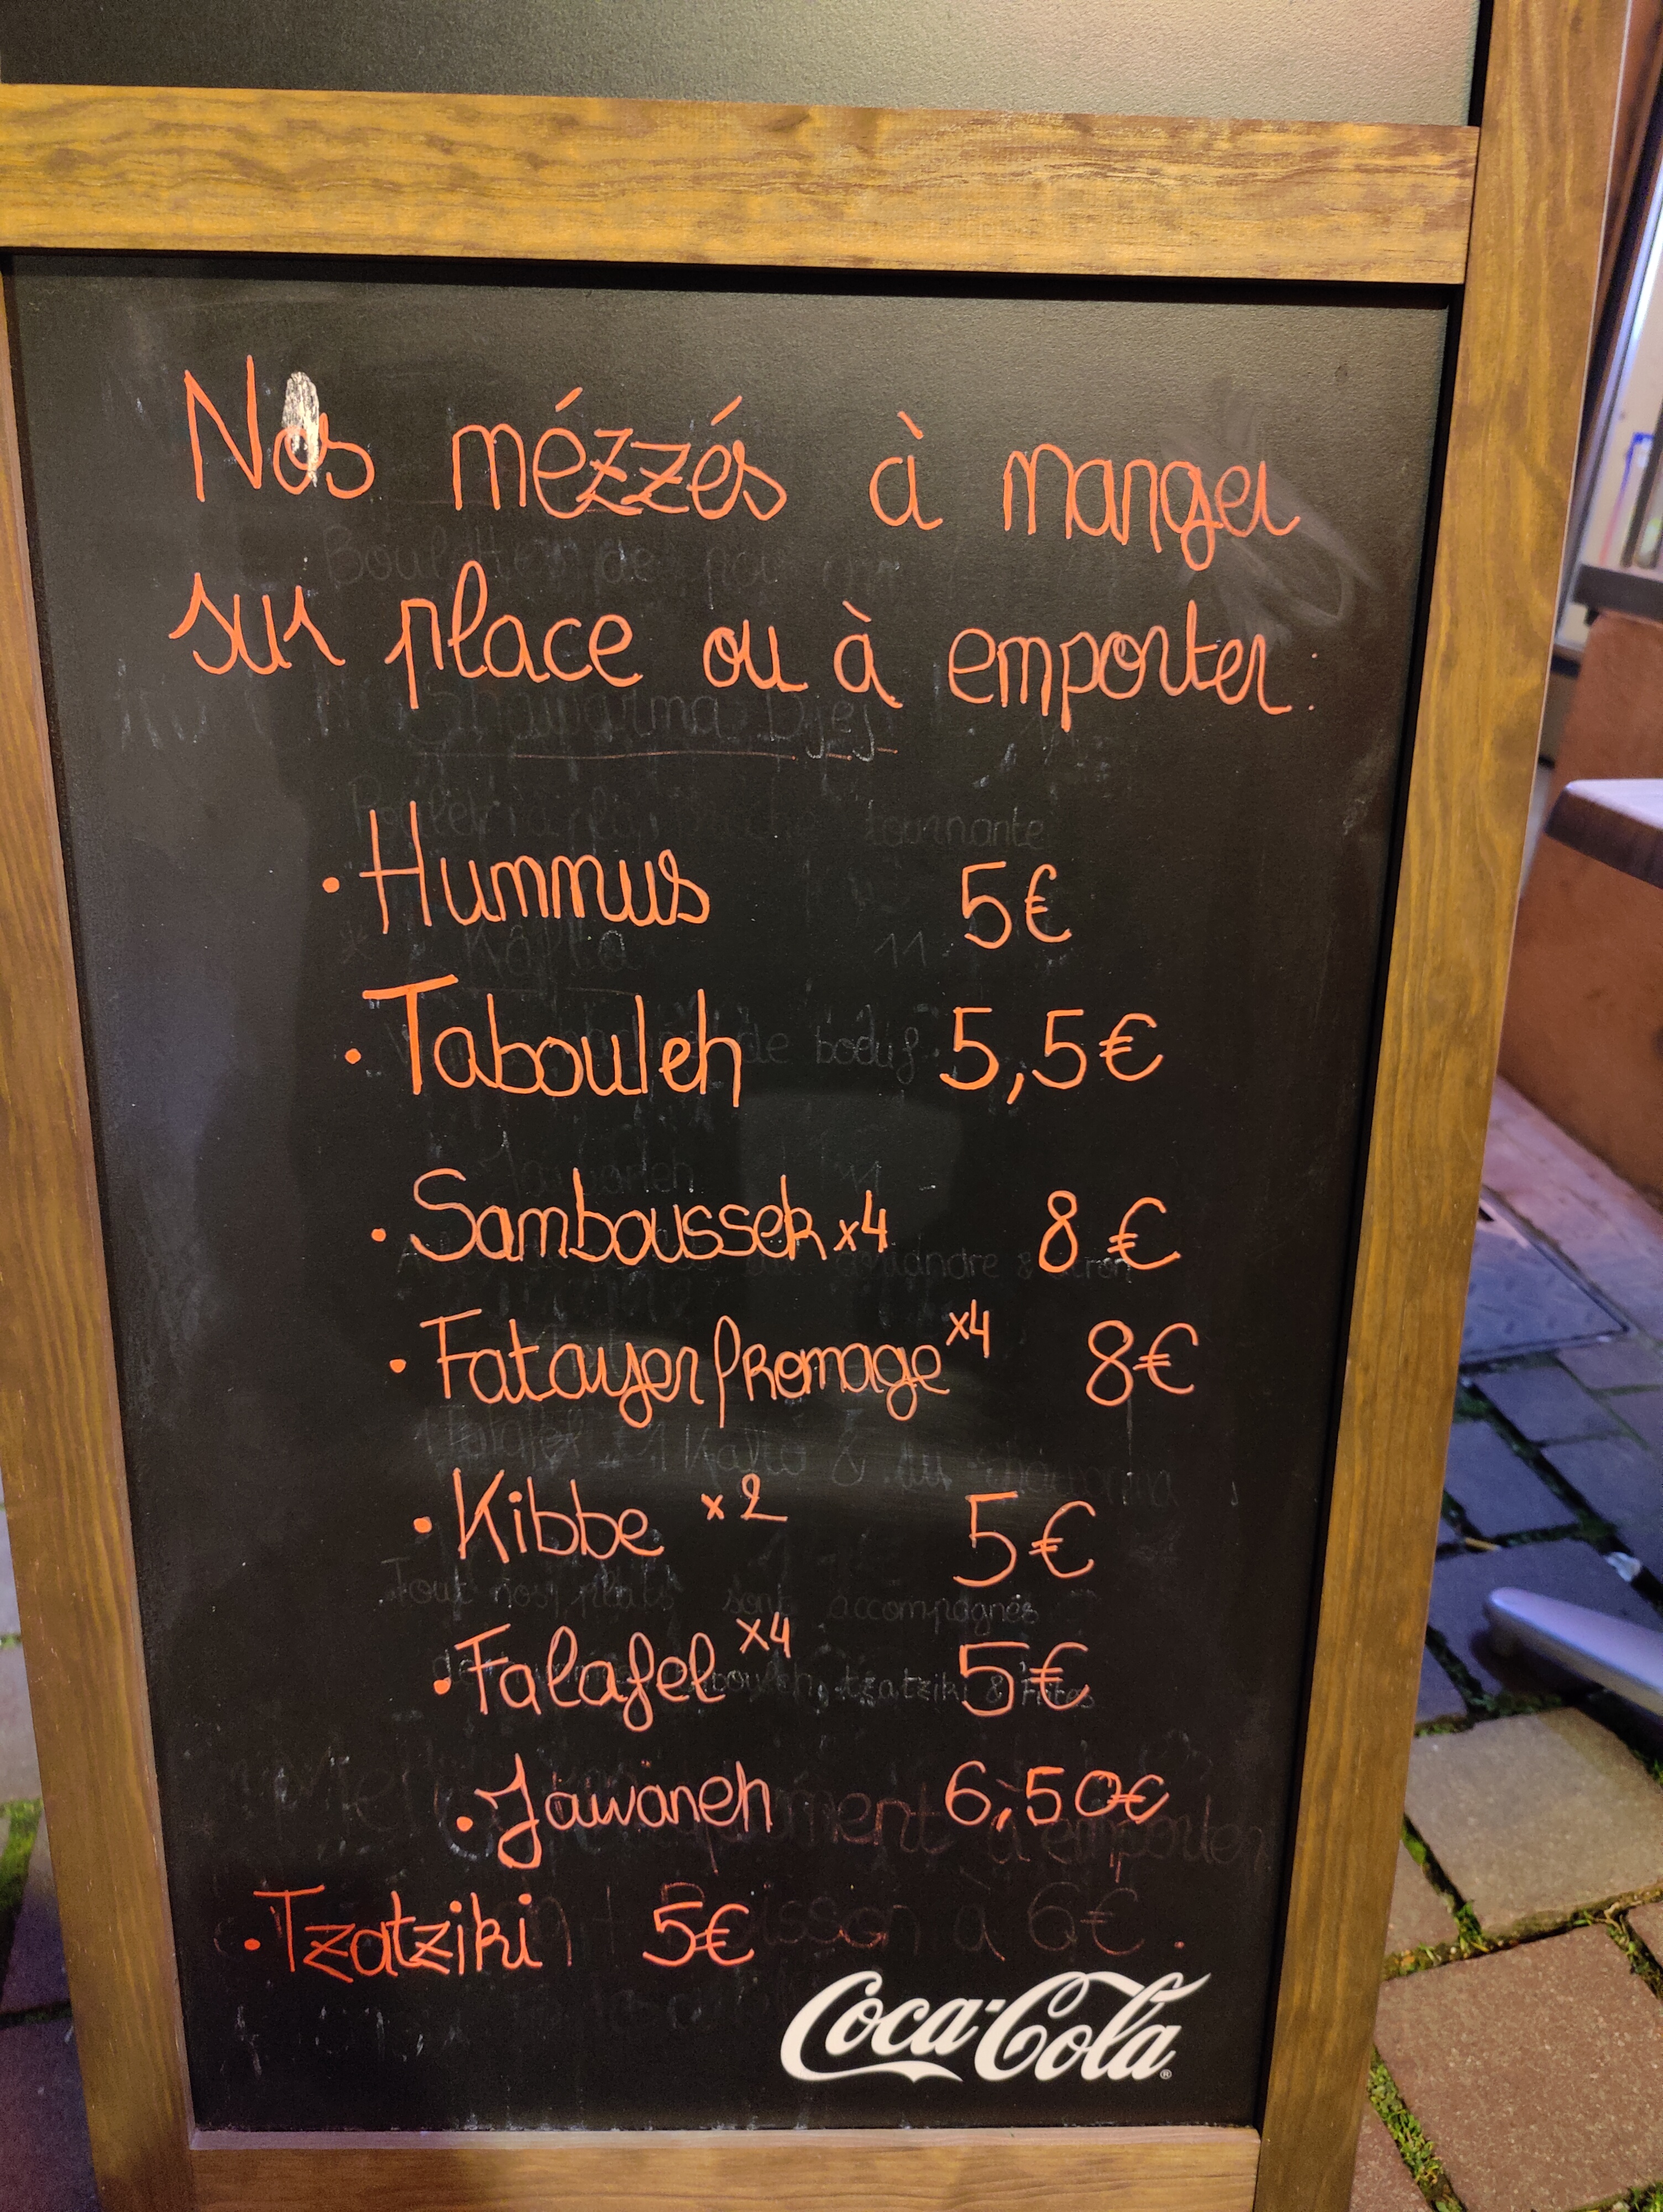 Nos mézzés à manger
sur place ou à emporter :
• Hummus 5€
• Tabouleh 5,5€
• Samboussek x4 8€
• Fatayer fromage x4 8€
• Kibbe x2 5€
• Falafel x4 5€
• Jawaneh 6,50€
• Tzatziki 5€
Coca-Cola